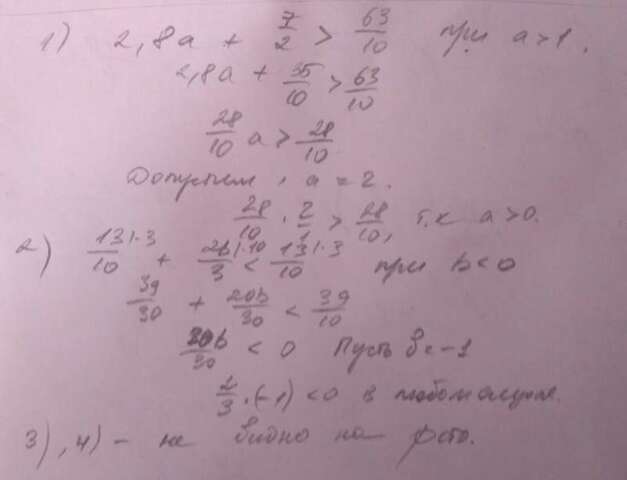 1) 2,8a + 7/2 > 63/10 при a>1.
2,8a + 35/10 > 63/10
28/10 a > 28/10
Допустим, a = 2.
28/10 · 2/1 > 28/10, т.к a>0.
2) 13/10 |·3 + 2b/3 |·10 < 13/10 |·3 при b<0
39/30 + 20b/30 < 39/10
20b/30 < 0 Пусть b = -1
2/3 · (-1) < 0 в любом случае.
3), 4) - не видно на фото.